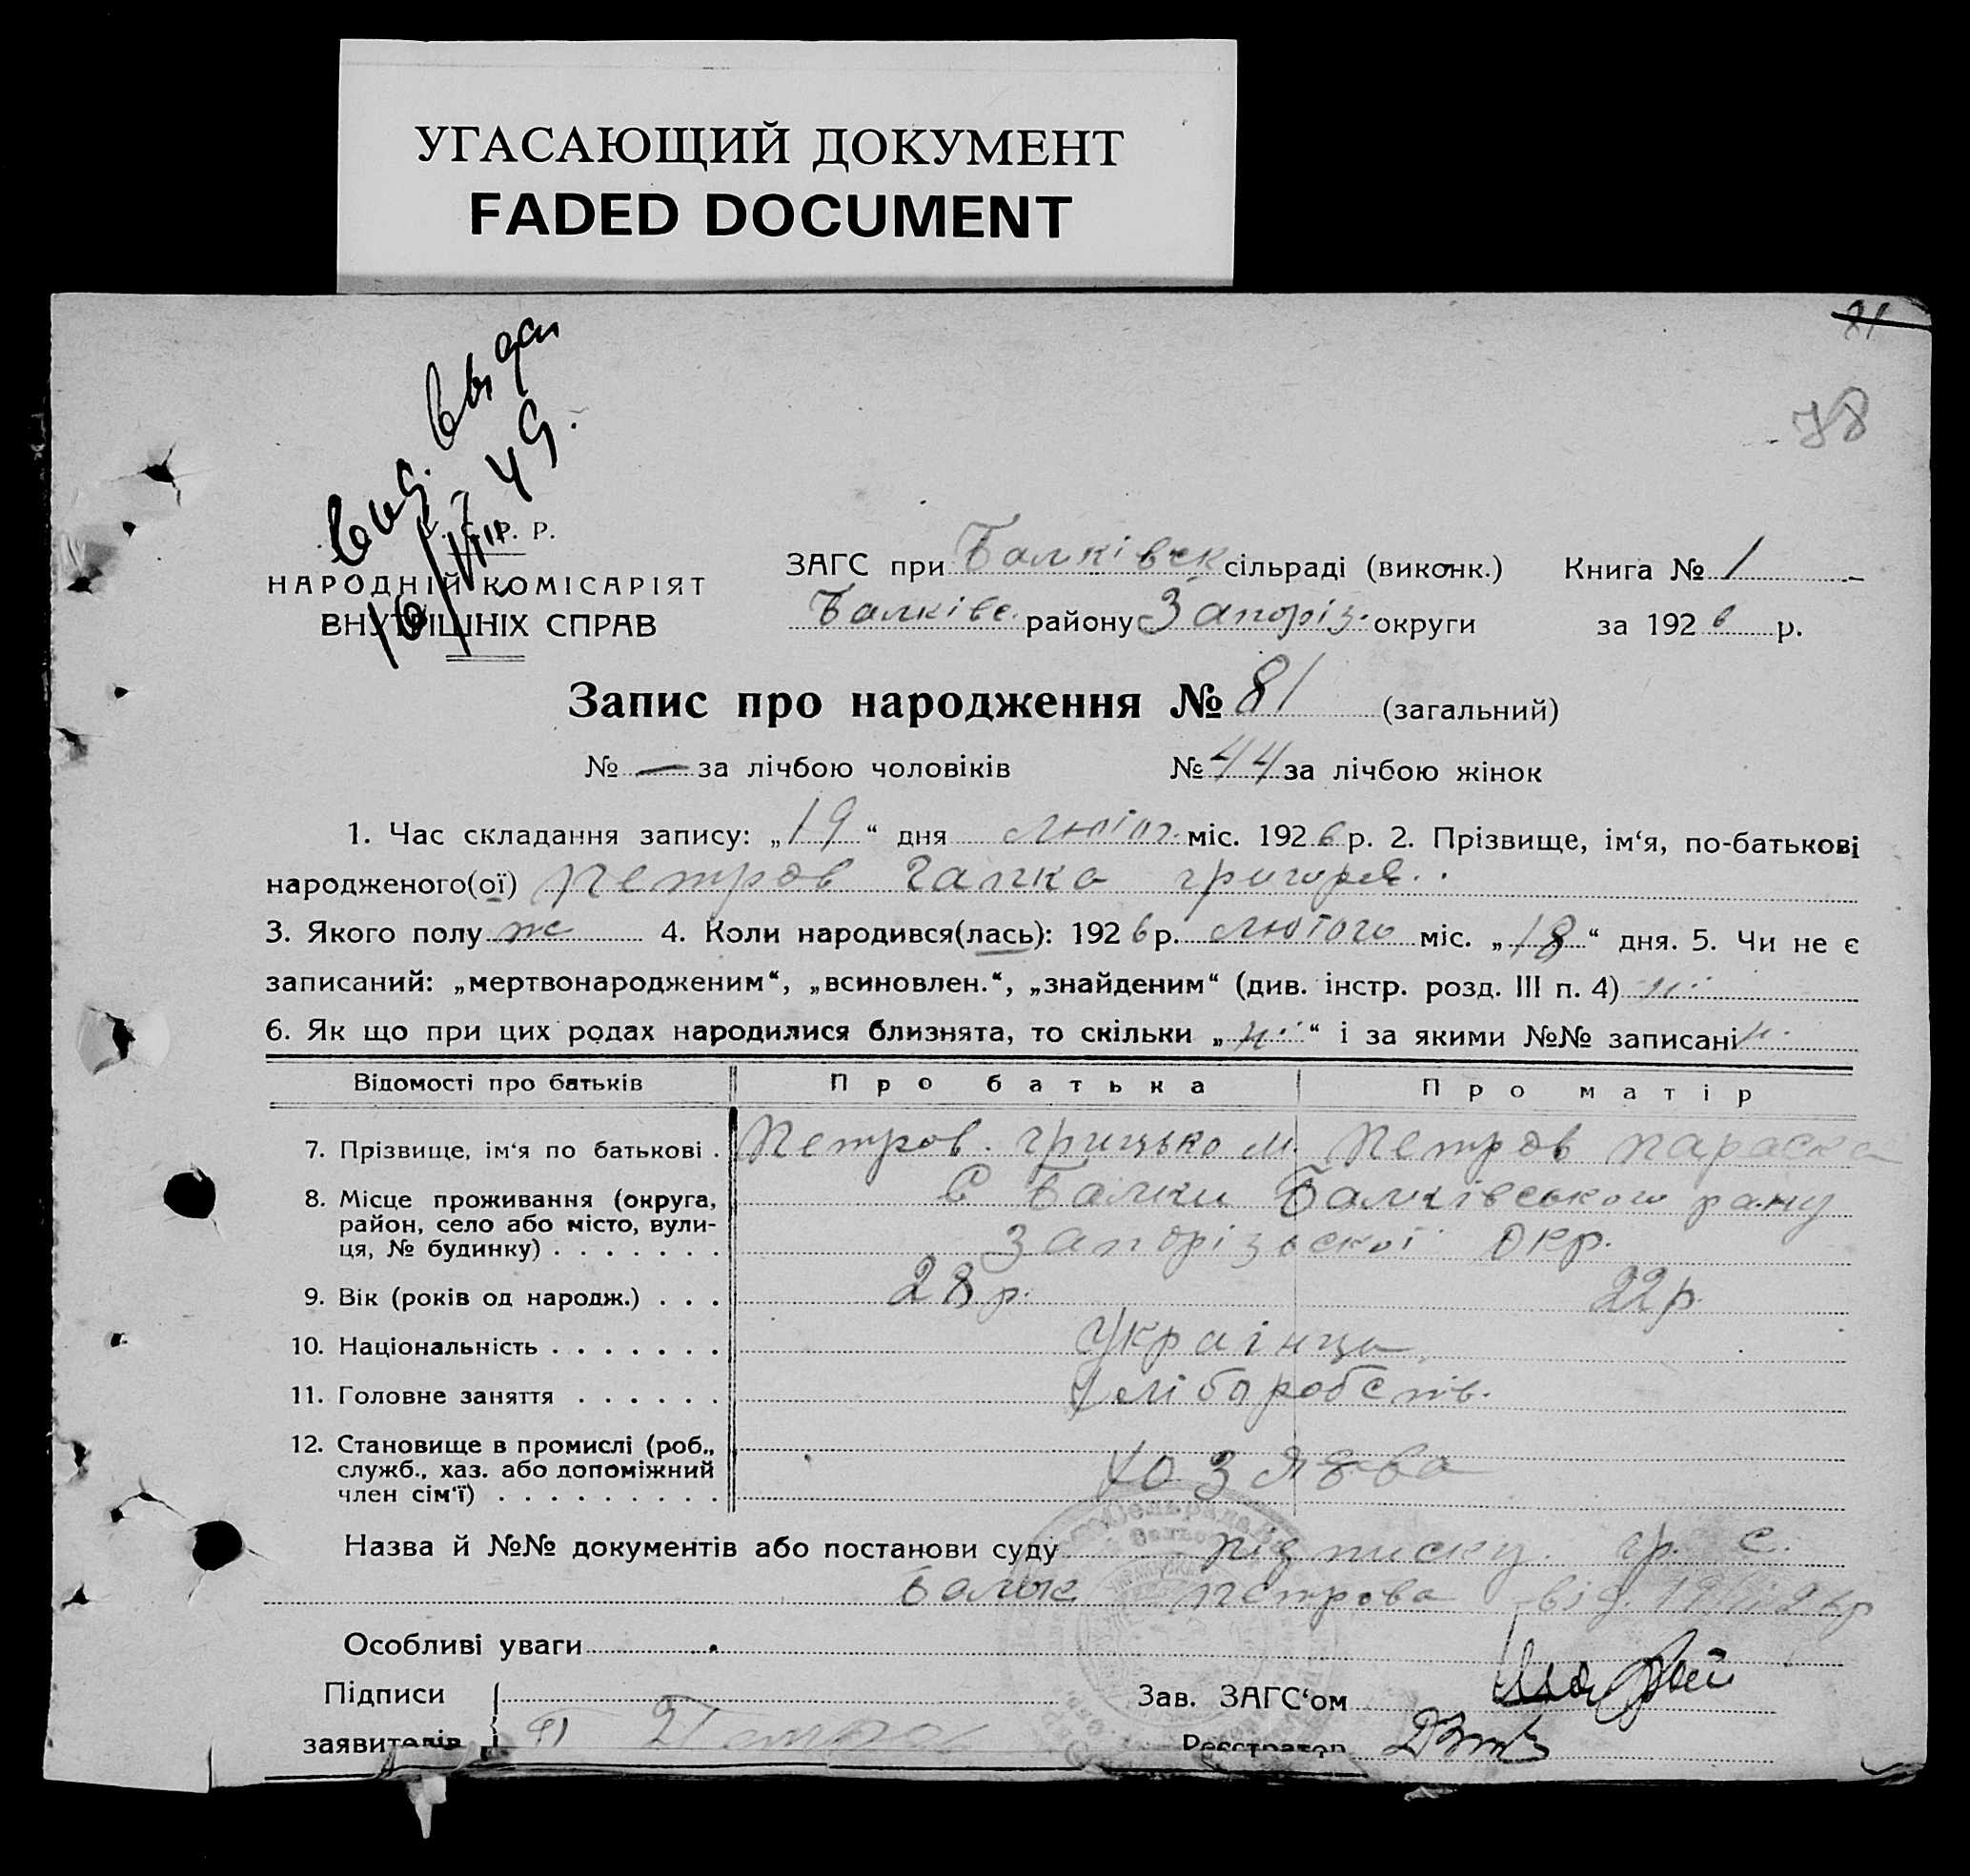 УГАСАЮЩИЙ ДОКУМЕНТ
FADED DOCUMENT
81
78
49.
Р. Р.
НАРОДНІЙ КОМІСАРІЯТ
ВНУТРІШНІХ СПРАВ
ЗАГС при Балківськ сільраді (виконк.) Книга № 1
Балківс. району Запоріз. округи за 1926 р.
Запис про народження № 81 (загальний)
№ — за лічбою чоловіків № 44 за лічбою жінок
1. Час складання запису: „19“ дня лютог. міс. 1926 р. 2. Прізвище, ім‘я, по-батькові
народженого(ої) Петров Галка Григоров.
3. Якого полу ж 4. Коли народився(лась): 1926 р. лютого міс. „18“ дня. 5. Чи не є
записаний: „мертвонародженим“, „всиновлен.“, „знайденим“ (див. інстр. розд. III п. 4) ні
6. Як що при цих родах народилися близнята, то скільки „ні“ і за якими №№ записані
Відомості про батьків Про батька Про матір
7. Прізвище, ім‘я по батькові . Петров. Грицько М. Петров Параска
8. Місце проживання (округа, с Балки Балківського рану
район, село або місто, вули-
ця, № будинку) . . . . . . . Запорізської окр.
9. Вік (років од народж.) . . . 28 р. 22 р.
10. Національність . . . . . . . Українці
11. Головне заняття . . . . . . хліборобств.
12. Становище в промислі (роб.,
служб., хаз. або допоміжний хозяева
член сім‘ї) . . . . . . . . .
Назва й №№ документів або постанови суду підписку гр. с.
Балок Петрова від
Особливі уваги
Підписи
Зав. ЗАГС‘ом
заявителів П
Реєстратор